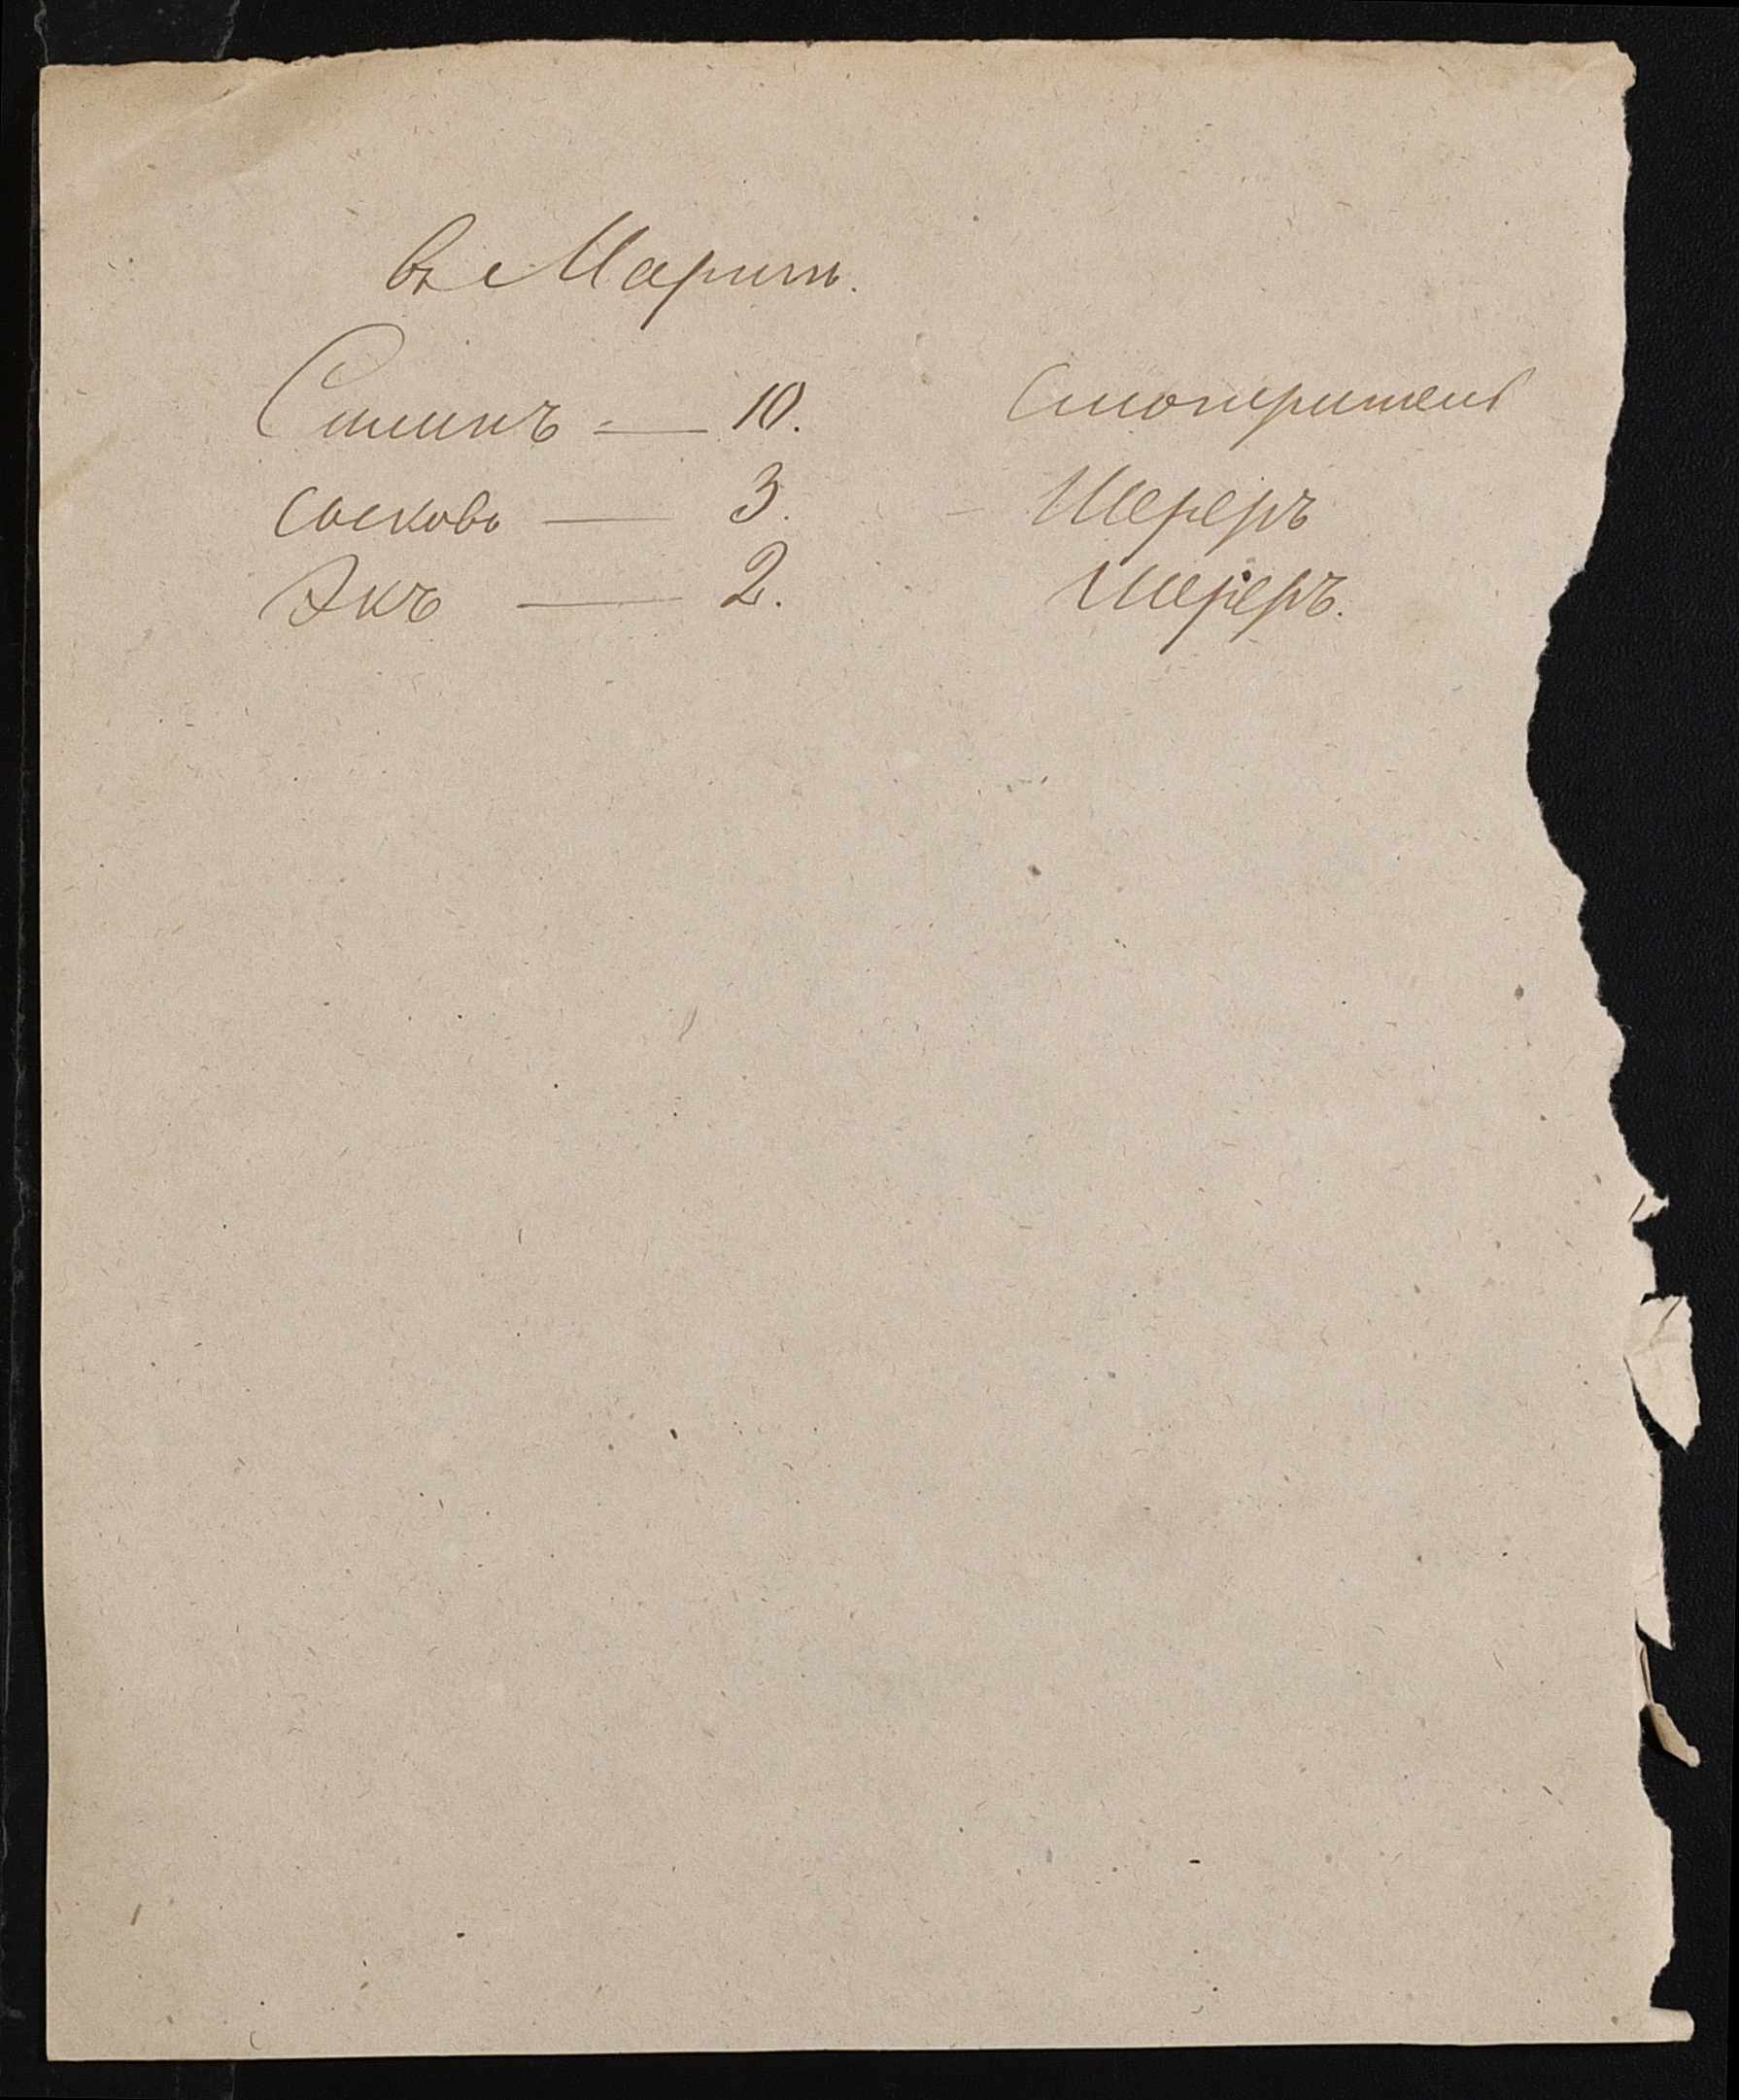 въ Маріин.
Силинъ — 10. Смотритель
Сосковъ — 3. Шереръ
Экъ — 2. Шереръ.